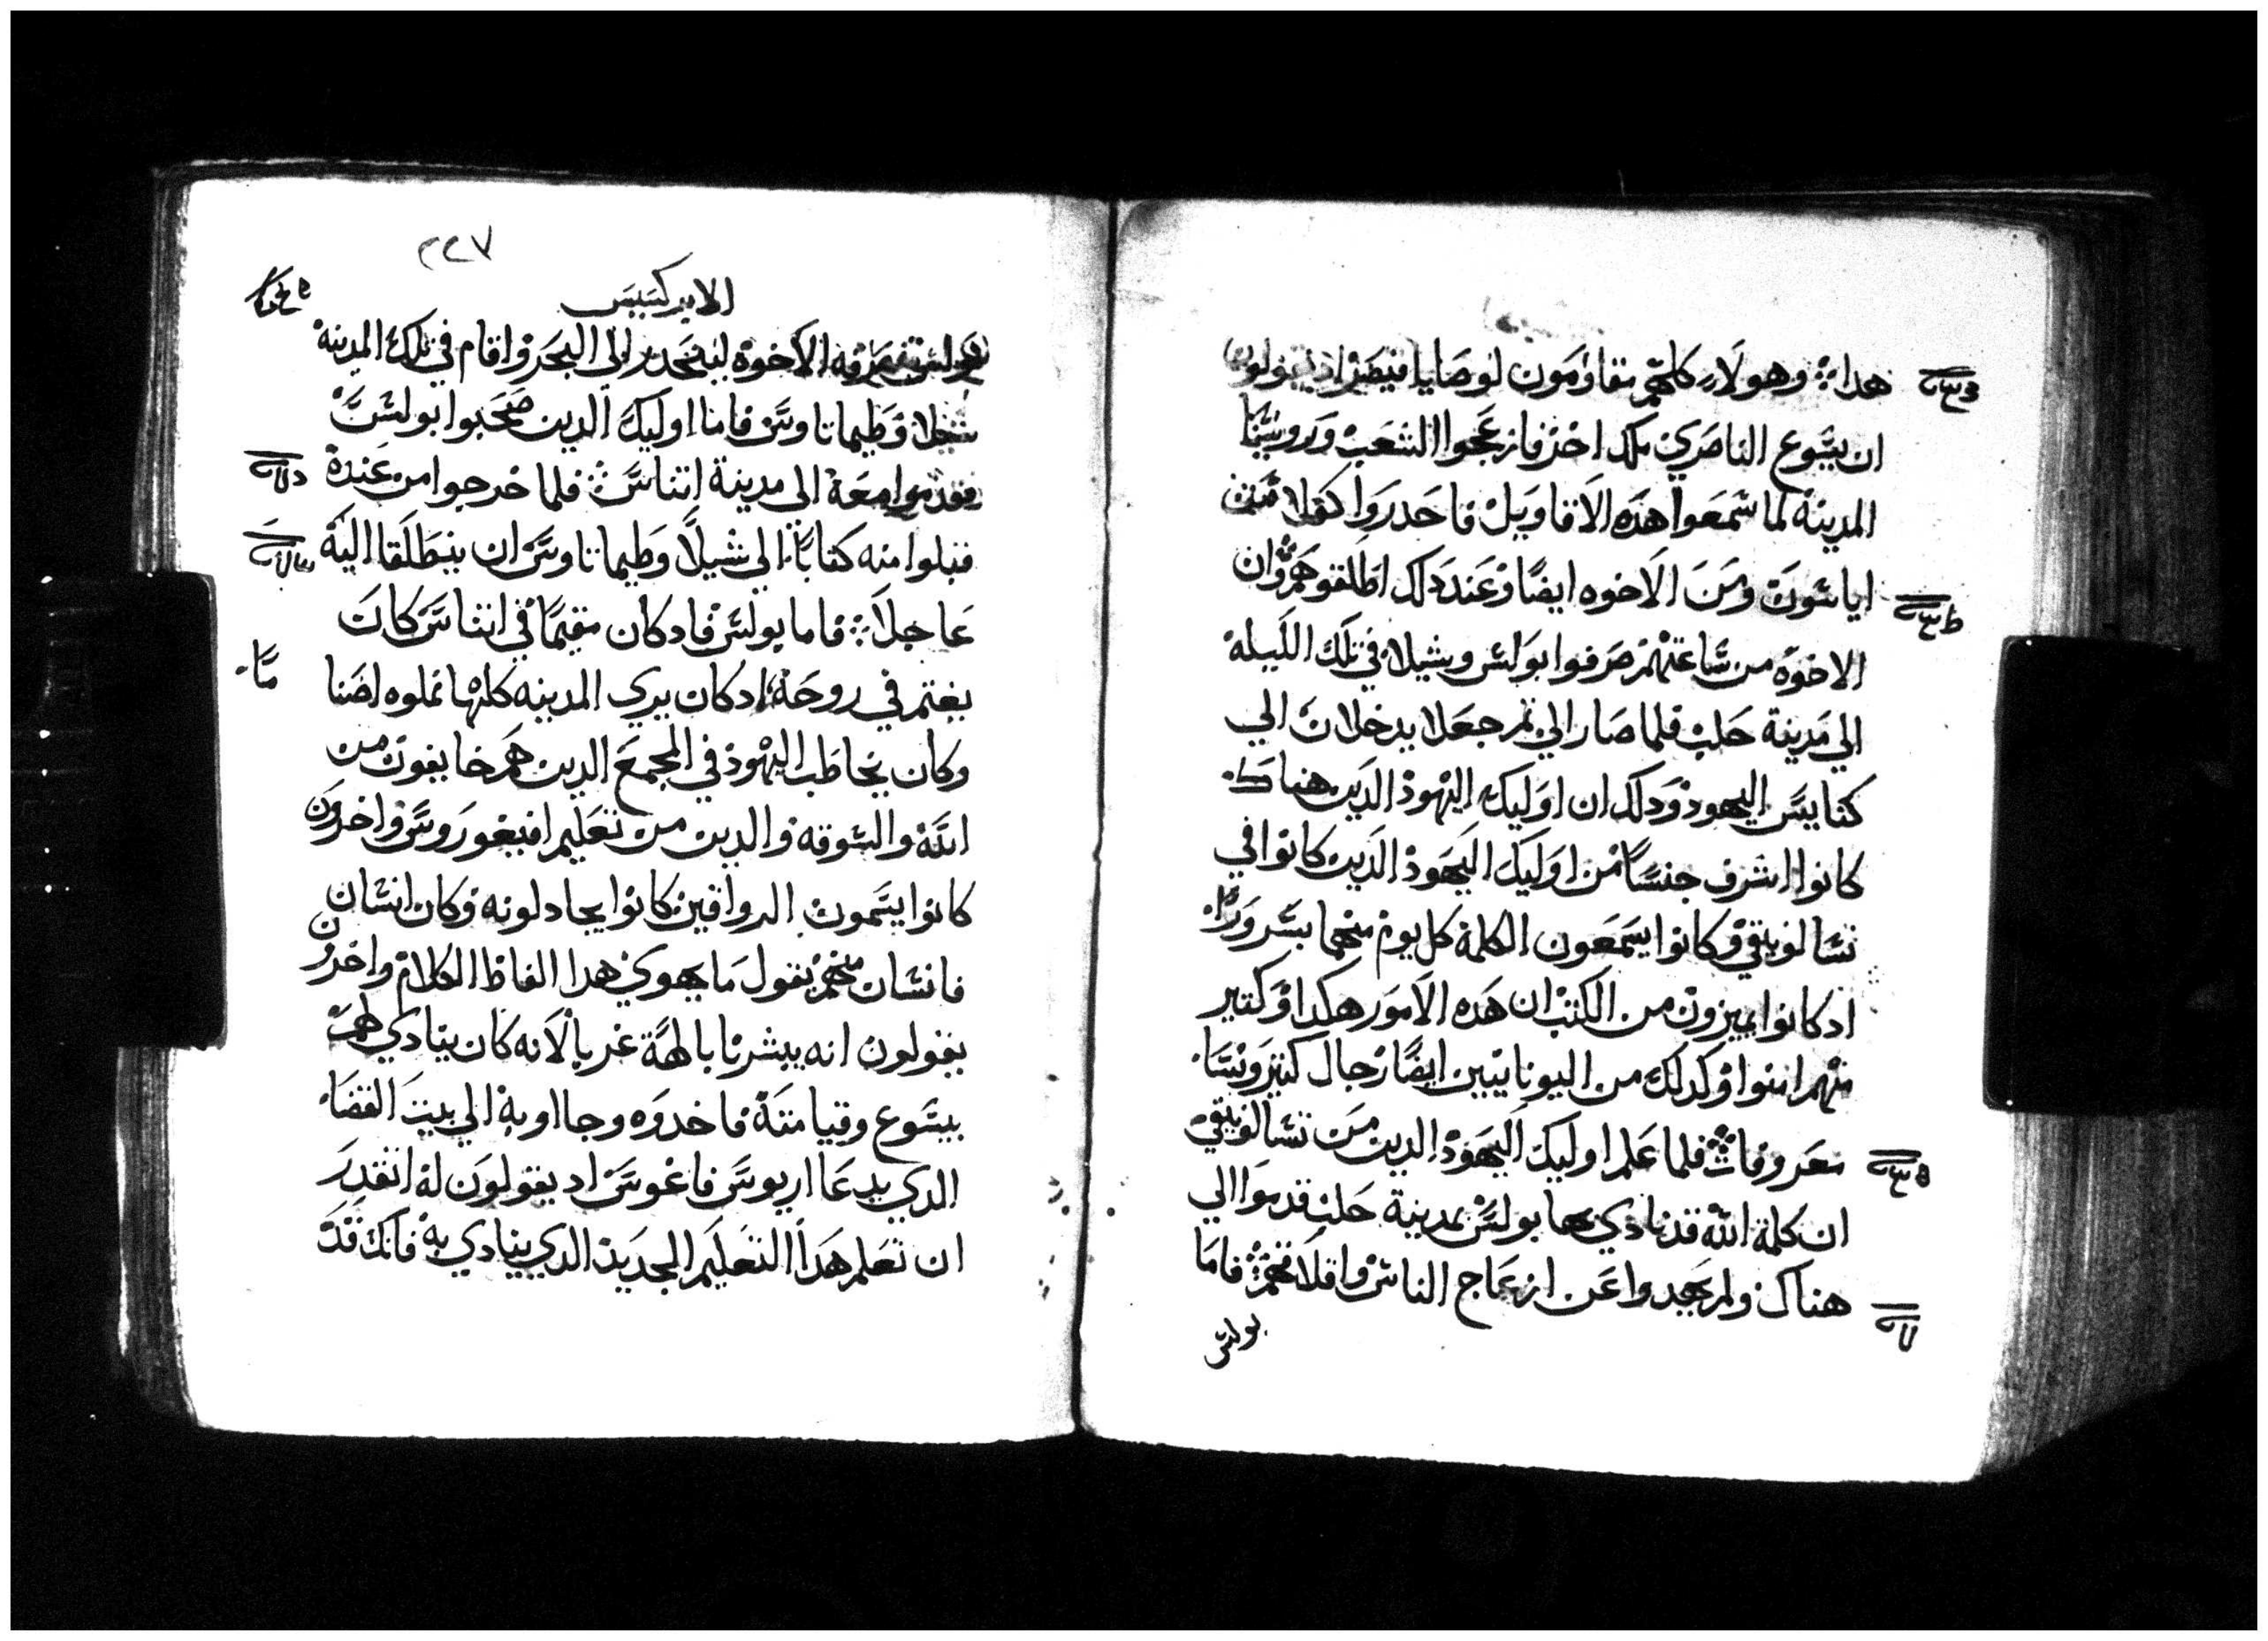 هدا؛ وهولاء كلهم مقاومون لوصايا قيصر اد يقولون
ان يسوع الناصري ملك اخر فازعجوا الشعب وروسا
المدينه لما سمعوا هده الاقاويل فاحدروا كفلا من
اياسون ومن الاخوه ايضا وعند دلك اطلقوهم وان
الاخوه من ساعتهم صرفوا بولس وشيلا في تلك الليله
الي مدينة حلب فلما صارا الي تم جعلا يدخلان الي
كنايس اليهود ودلك ان اوليك اليهود الدين هناك
كانوا اشرف جنسا من اوليك اليهود الدين كانوا في
تسالونيقي وكانوا يسمعون الكلمة كل يوم منهما بسرور
ادكانوا يميزون من الكتب ان هده الامور هكدا وكتير
منهم امنوا وكدلك من اليونانيين ايضا رجال كتير ونسا
معروفات فلما علم اوليك اليهود الدين من تسالونيقي
ان كلمة الله قد نادي بها بولس بمدينة حلب قدموا الي
هناك ولم يهدوا عن ازعاج الناس واقلاقهم فاما
بولس
٢٢٧
الابركسيس
بولس فصرفه الاخوه لينحدر الي البحر واقام في تلك المدينه
شيلا وطيماتاوس فاما اوليك الدين صحبوا بولس
فقدموا معه الي مدينة اتناس فلما خرجوا من عنده
قبلوا منه كتابا الي شيلا وطيماتاوس ان ينطلقا اليه
عاجلا؛ فاما بولس فادكان مقيما في اتناس كان
يغتم في روحه ادكان يري المدينه كلها مملوه اصناما
وكان يخاطب اليهود في المجمع الدين هم خايفون من
الله والسوقه والدين من تعليم افيغوروس واخرون
كانوا يسمون الرواقين كانوا يجادلونه وكان انسان
فانسان منهم يقول ما يهوي هدا الفاظ الكلام واخرون
يقولون انه يبشرنا بالهة غربا لانه كان ينادي لهم
بيسوع وقيامته فاخدوه وجااوبه الي بيت القضا
الدي يدعا اريوس فاغوس اد يقولون له اتقدر
ان تعلم هدا التعليم الجديد الدي ينادي به فانك قد